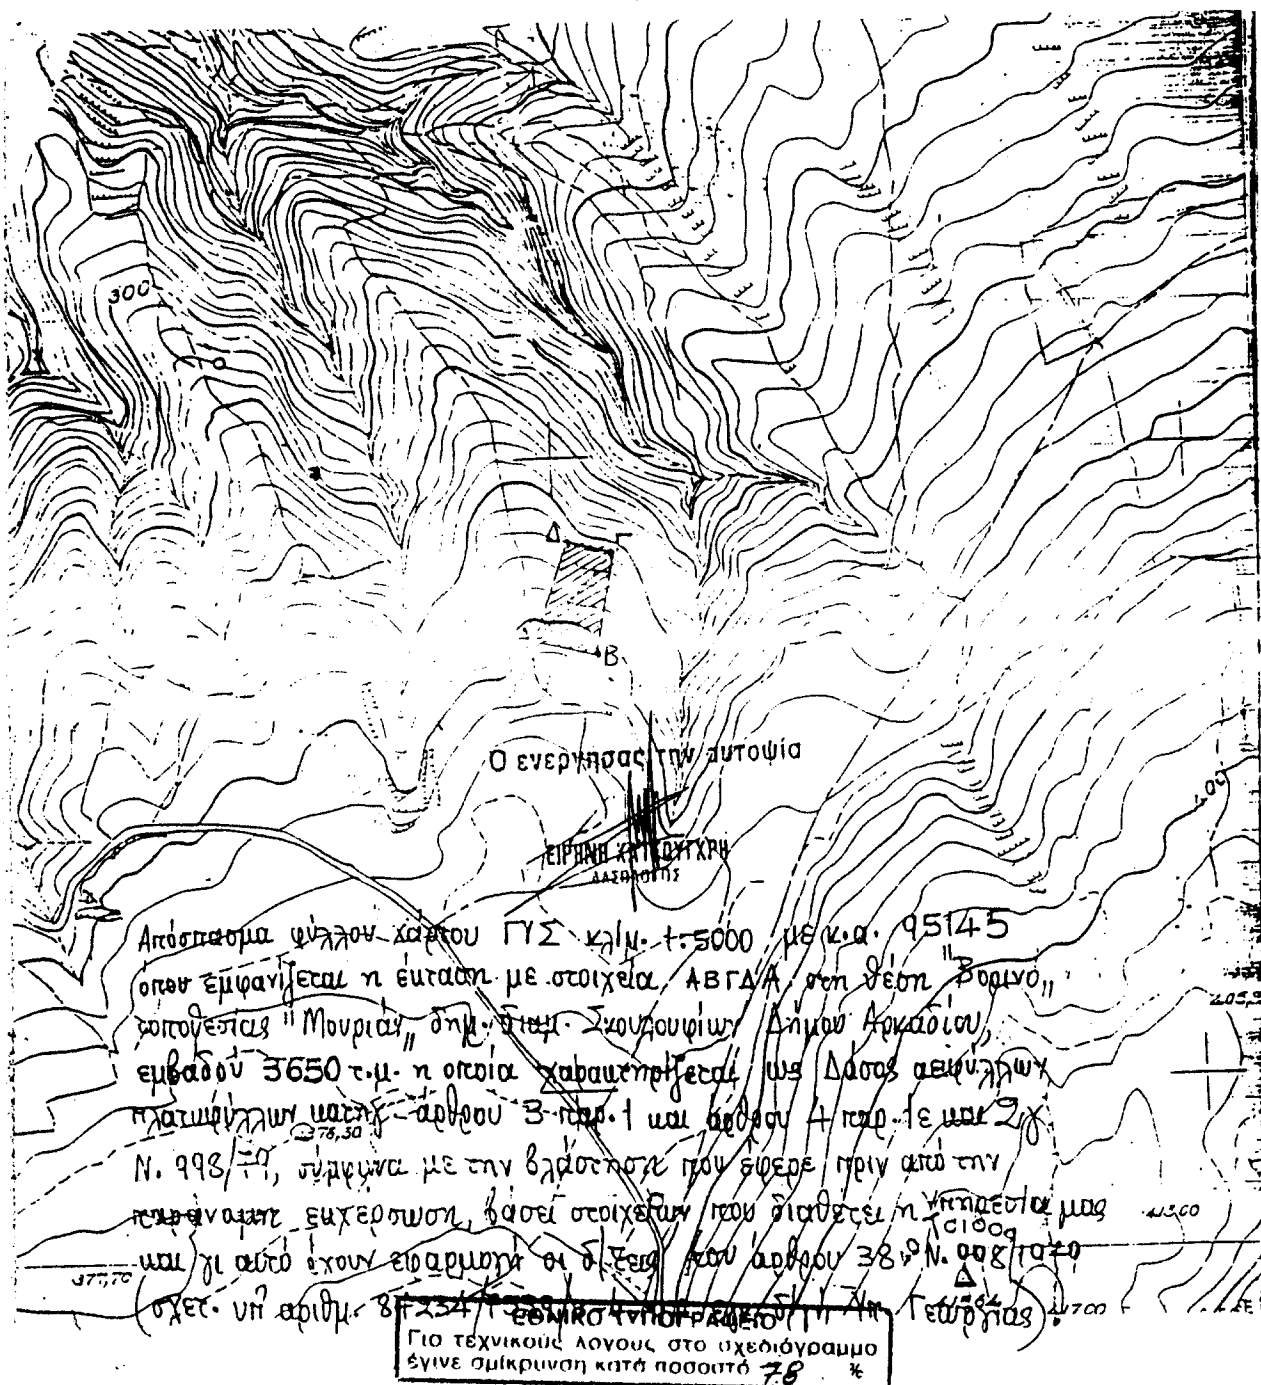 300
Δ Γ
Β
Ο ενεργησας την αυτοψία
400
ΕΙΡΗΝΗ
ΔΑΣΟΛΟΓΟΣ
Απόσπασμα φύλλου χάρτου ΓΥΣ κλίμ. 1:5000 με κ.α. 95145
όπου εμφανίζεται η έκταση με στοιχεία ΑΒΓΔΑ στη θέση "Βορινό"
τοποθεσίας "Μουριάν" δημ. διαμ. Σκουλουφίων Δήμου Αρκαδίου,
εμβαδού 3650 τ.μ. η οποία χαρακτηρίζεται ως Δάσος αειφύλλων
πλατυφύλλων κατηγ. άρθρου 3 παρ. 1 και άρθρου 4 παρ. 1ε και 2γ
378,50
Ν. 998/79, σύμφωνα με την βλάστηση που έφερε πριν από την
παράνομη εκχέρσωση, βάσει στοιχείων που διαθέτει η Υπηρεσία μας
413,00
και γι αυτό έχουν εφαρμογή οι δ/ξεις του άρθρου 38 Ν. 998/1979
377,70
(σχετ. υπ αριθμ. Γεωργίας).
417,00
ΕΘΝΙΚΟ ΤΥΠΟΓΡΑΦΕΙΟ
Για τεχνικούς λόγους στο σχεδιόγραμμο
έγινε σμίκρυνση κατά ποσοστό 78 %